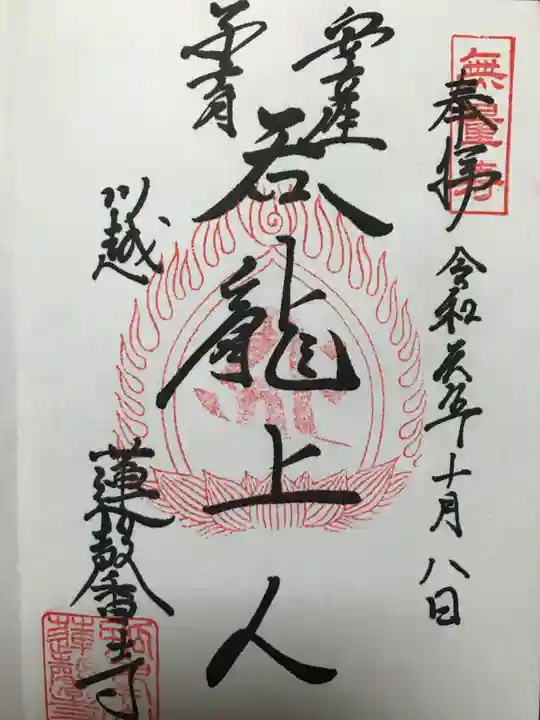 無量寿
奉拝
令和元年十月八日
安産
子育
呑龍上人
川越
蓮馨寺